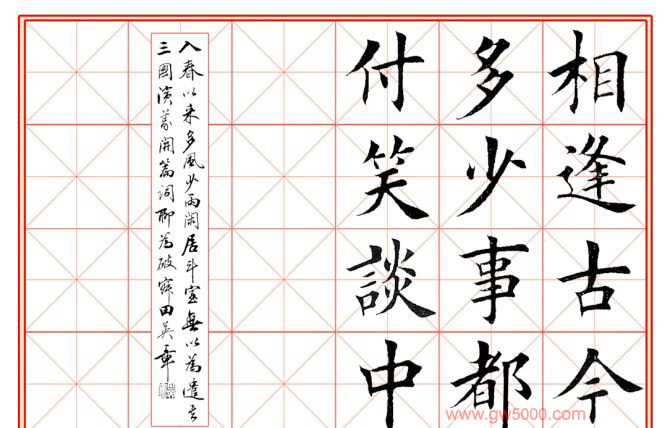 相逢古今
多少事都
付笑談中
入春以来多風少雨閑居斗室無以為遣書
三國演義開篇詞聊為破寂田英章
www.gw5000.com